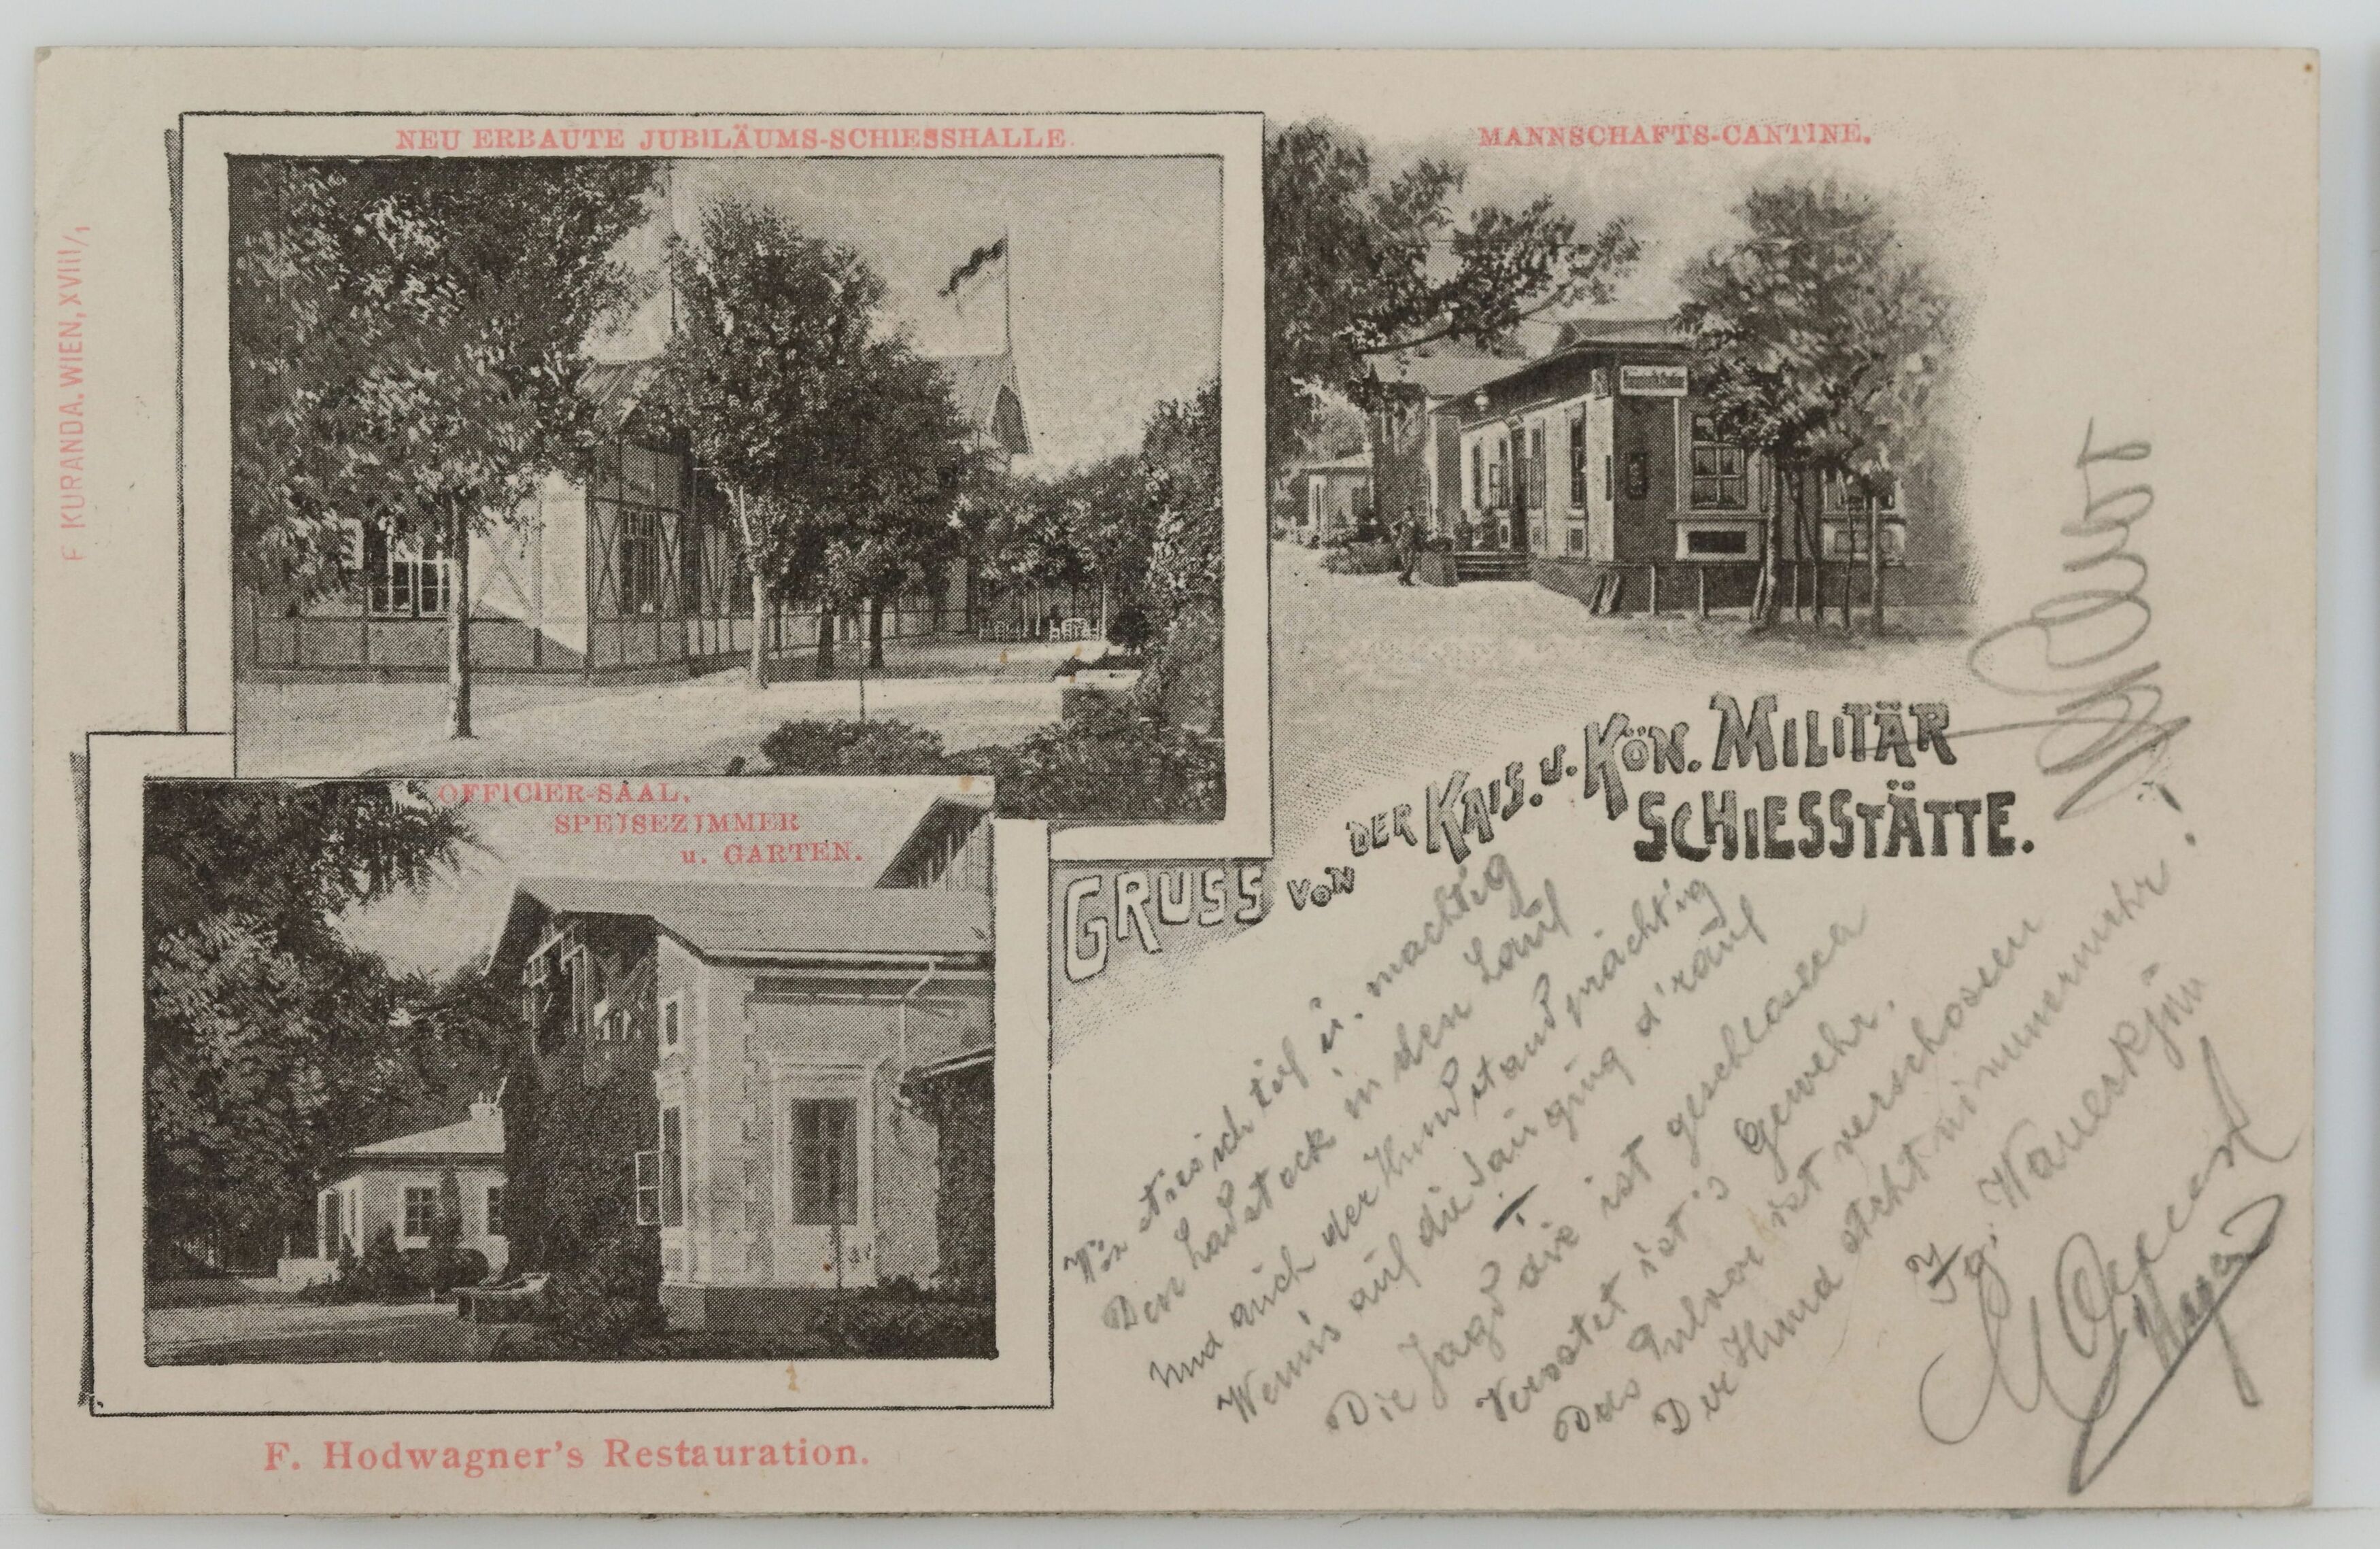 NEU ERBAUTE JUBILÄUMS-SCHIESSHALLE.
MANNSCHAFTS-CANTINE.
F KURANDA. WIEN, XVIII/1
OFFICIER-SAAL,
SPEISEZIMMER
u. GARTEN.
GRUSS VON DER KAIS. u. KÖN. MILITÄR
SCHIESSTÄTTE.
F. Hodwagner's Restauration.
stiess ich tief u. mächtig
Den Ladstock in den Lauf
Und auch der Hund stand prächtig
Wenn's auf die Sau ging d'rauf
Die Jagd die ist geschlossen
Verrostet ist's Gewehr.
Das Pulver ist verschossen
Der Hund steht nimmermehr!